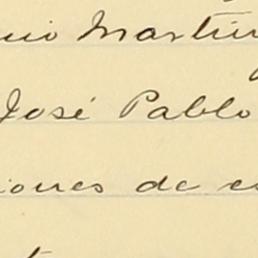 nio Martín
José Pablo
iones de es